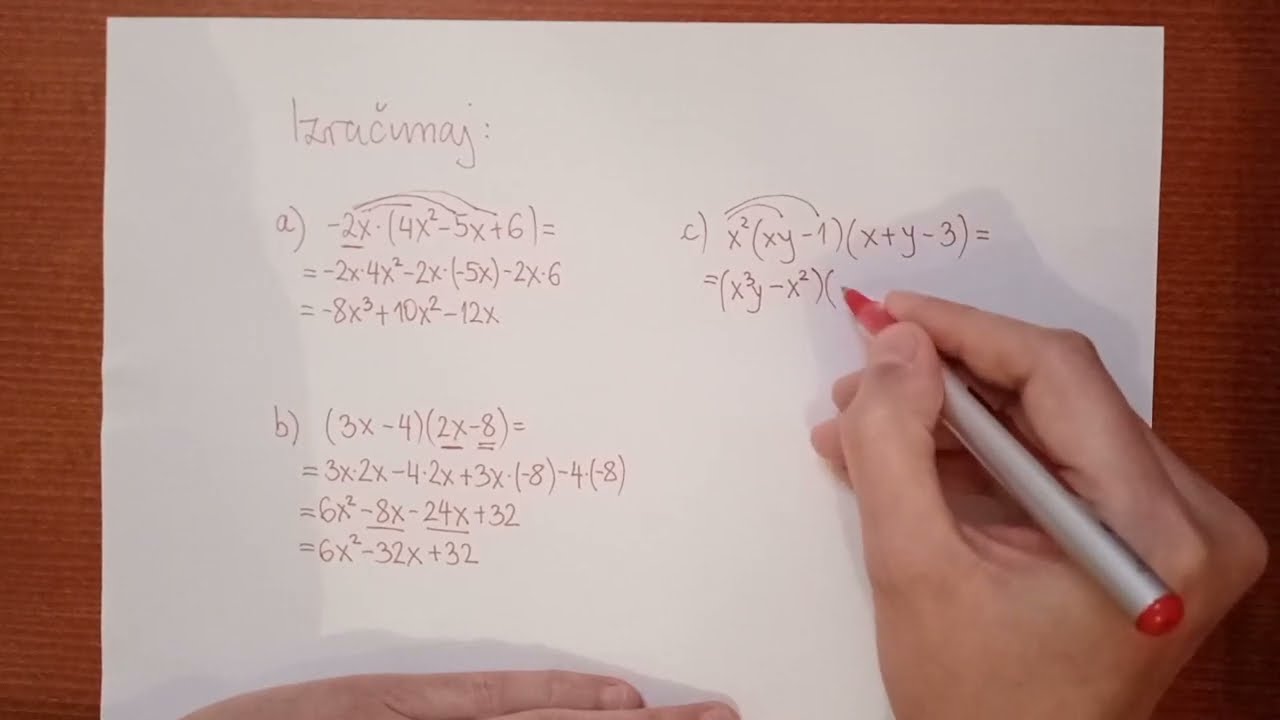 Izračunaj:
a) -2x·(4x²-5x+6)=
=-2x·4x²-2x·(-5x)-2x·6
=-8x³+10x²-12x
b) (3x-4)(2x-8)=
=3x·2x-4·2x+3x·(-8)-4·(-8)
=6x²-8x-24x+32
=6x²-32x+32
c) x²(xy-1)(x+y-3)=
=(x³y-x²)(